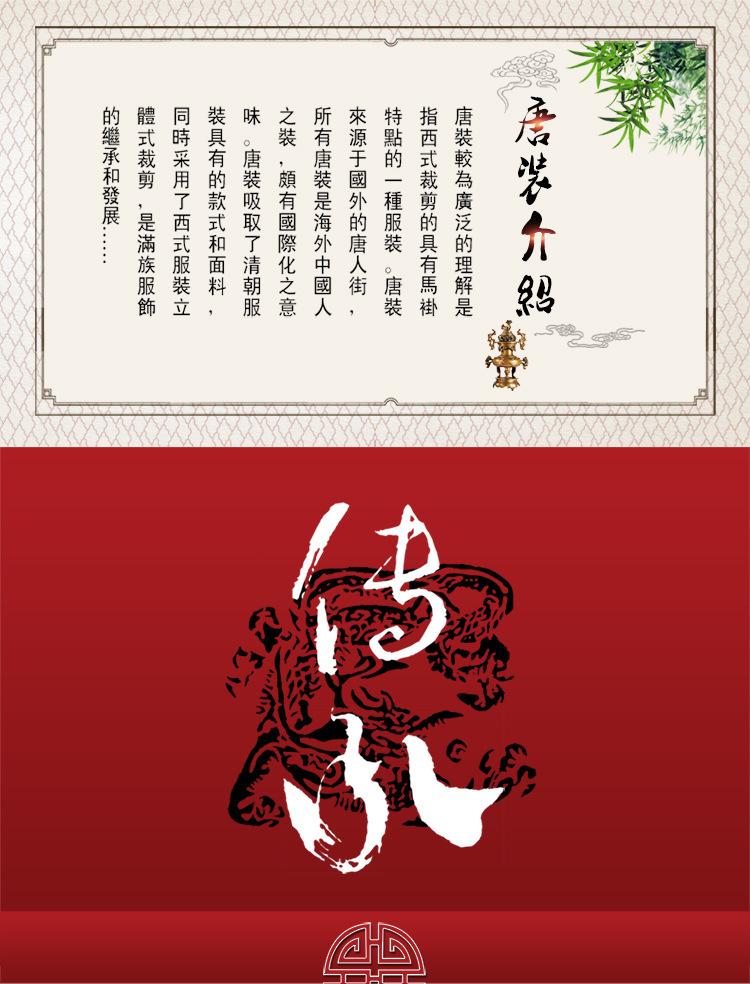 唐裝介紹
唐裝較為廣泛的理解是
指西式裁剪的具有馬褂
特點的一種服裝。唐裝
來源于國外的唐人街，
所有唐裝是海外中國人
之裝，頗有國際化之意
味。唐裝吸取了清朝服
裝具有的款式和面料，
同時采用了西式服裝立
體式裁剪，是滿族服飾
的繼承和發展……
傳承